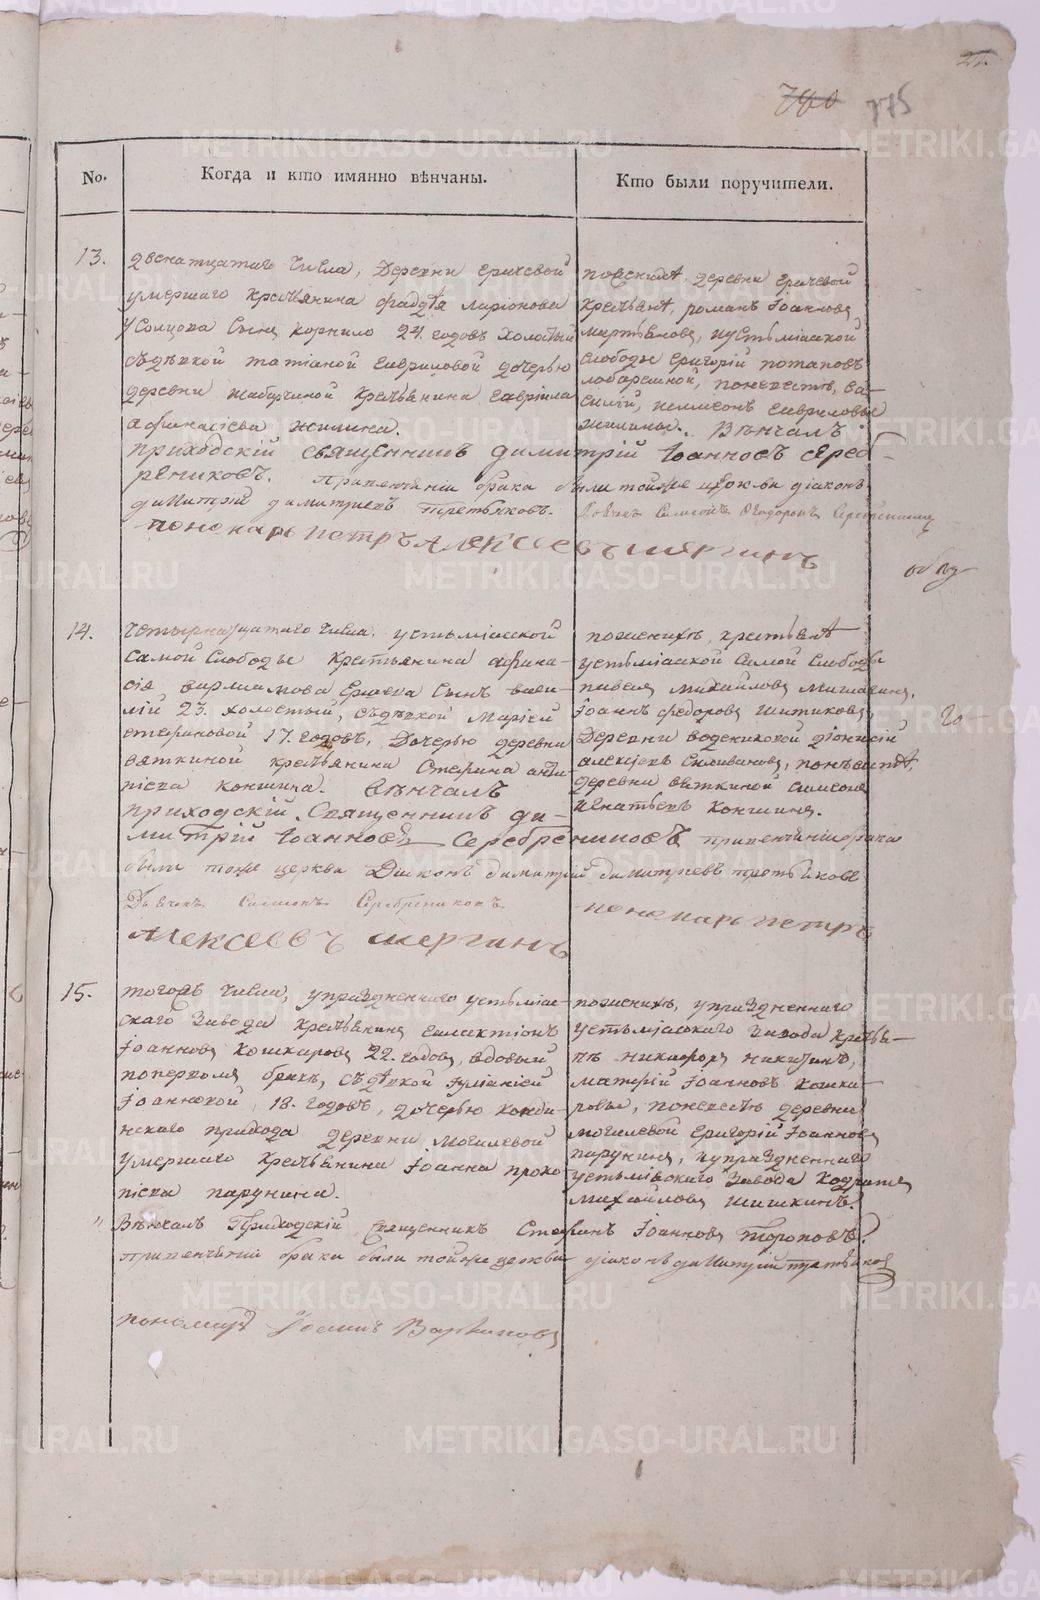 775
No.
Когда и кто имянно вѣнчаны.
Кто были поручители.
13.
двенатцатаго числа, Деревни
умершаго крестьянина фаддѣя ларіонова
Усолцова сынъ корнило 24. годовъ холостый
съ дѣвкой татіаной гавриловой дочерью
деревни крестьянина гавріила
афонасіева жилина.
приходскій священникъ димитрій Іанновъ сереб-
рениковъ. при венчаніи брака были тойже церкви діаконъ
димитрій димитріевъ третьяковъ.
пономарь петръ Алексеевъ шергинъ
по женихѣ деревни
крестьянѣ, романъ Іоанновъ
мартьяновъ, и устьміасской
слободы григорій потаповъ
по невестѣ, ва-
силій, и симеонъ гавриловы
жилины. Вѣнчалъ
14.
четырнадцатаго числа, устьміасской
самой слободы крестьянина афана-
сія варламова сынъ васи-
лій 23. холостый, съ дѣвкой Маріей
стефановой 17. годовъ, Дочерью деревни
вяткиной крестьянина Стефана анти-
піева коншина. вѣнчалъ
приходскій священникъ ди-
митрій Іанновъ Серебрениковъ при венчаніи брака
были тоже церкви Диаконъ димитрій димитріевъ третьяковъ
Дьячекъ симеонъ Серебрениковъ
пономарь петръ
Алексеевъ шергинъ
по женихѣ, крестьянѣ
устьміасской самой слободы
павелъ михайловъ
Іоаннъ федоровъ шитиковъ,
Деревни водениковой діонисій
алексѣевъ по невестѣ,
деревни вяткиной симеонъ
игнатьевъ коншинъ.
15.
тогожъ числа, упраздненнаго устьміас-
скаго завода крестьянинъ галактіонъ
Іоанновъ Кошкаровъ 22. годовъ, вдовый
по первомъ бракѣ, съ дѣвкой іуліаніей
Іоанновой 18. годовъ, дочерью конди-
нскаго прихода деревни могилевой
умершаго крестьянина Іоанна проко-
піева парунина.
Вѣнчалъ Приходскій священникъ Стефанъ Іоанновъ Тороповъ.
при венчаніи брака были тойже церкви діаконъ димитрій третьяковъ
пономарь
по женихѣ, упраздненнаго
устьміасскаго завода крестья-
нѣ никифоръ никитинъ,
матфій Іоанновъ кошка-
ровы, по невестѣ деревни
могилевой григорій Іоанновъ
парунинъ, и упраздненнаго
устьміасскаго завода кодратъ
михайловъ шишкинъ.